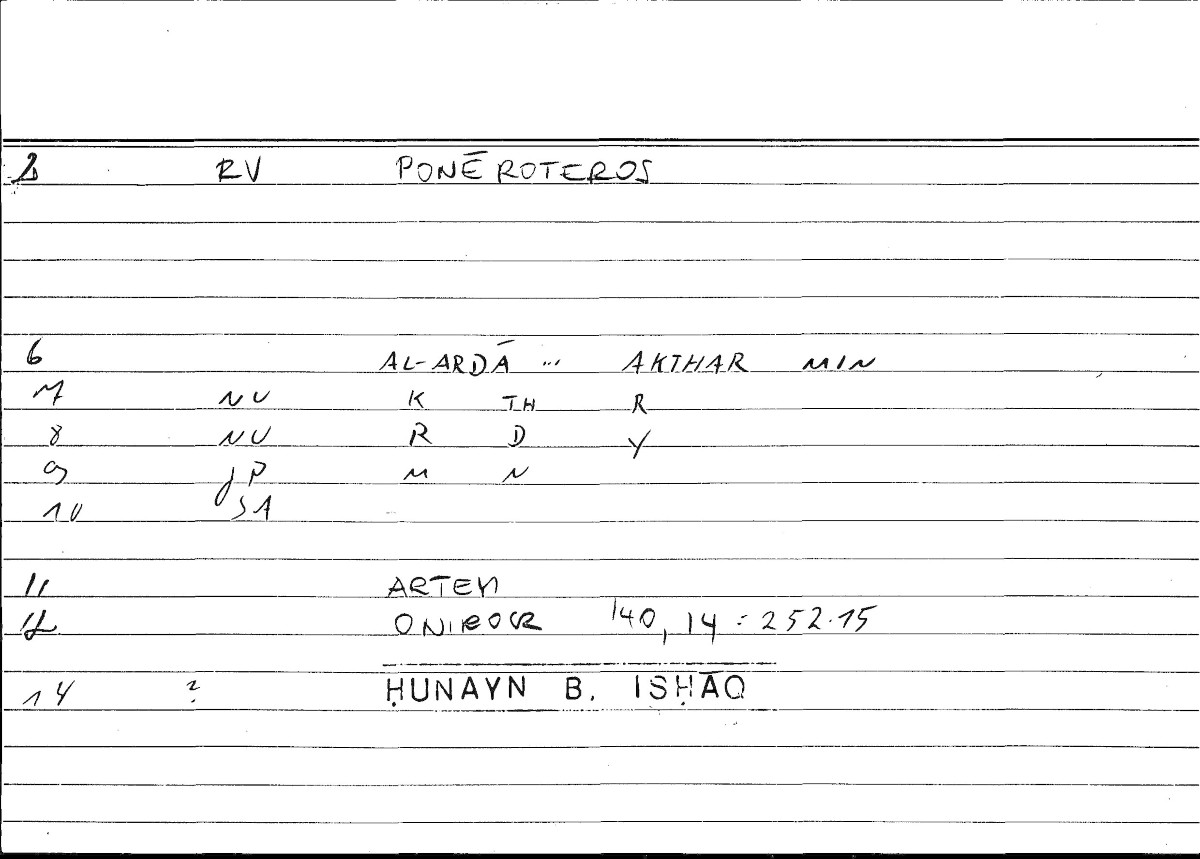 2 RV PONĒROTEROS
6 AL-ARDĀ ... AKTHAR MIN
7 NU K TH R
8 NU R D Y
9 JP M N
10 SA
11 ARTEM
12 ONIROCR 140, 14 = 252.15
14 ? ḤUNAYN B. ISḤĀQ